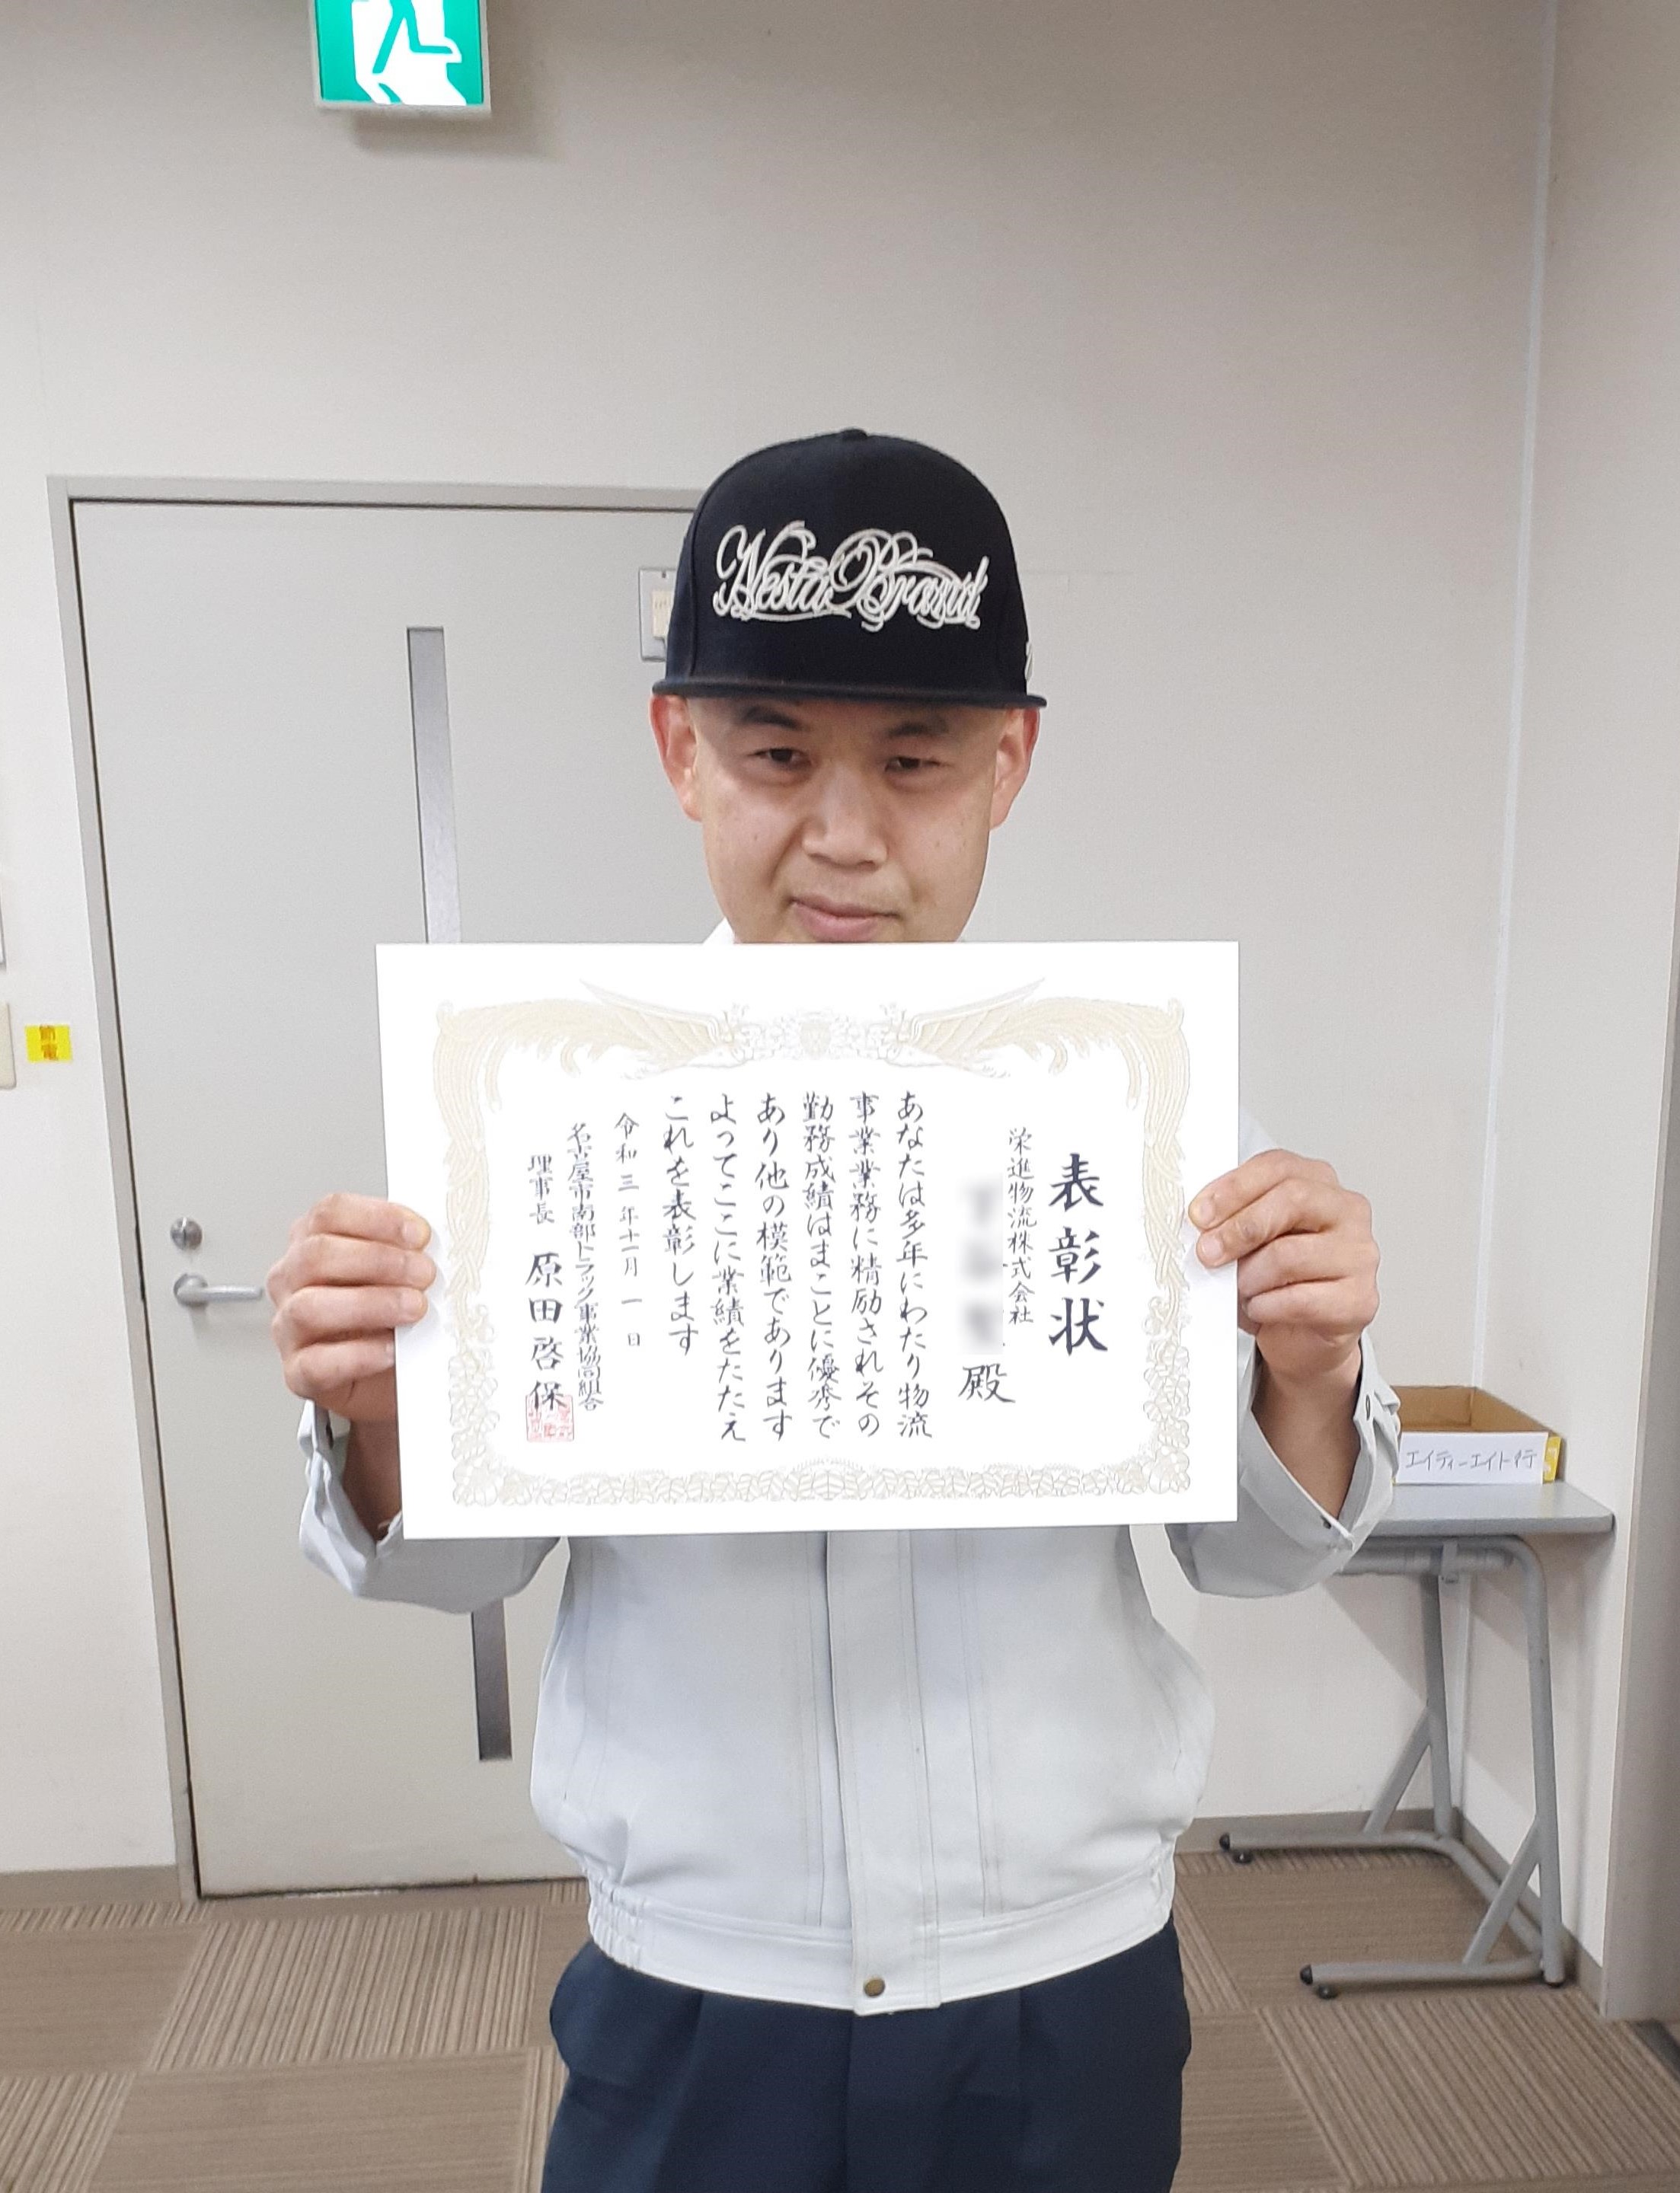 Nesta Brand
表彰状
栄進物流株式会社
殿
あなたは多年にわたり物流
事業業務に精励されその
勤務成績はまことに優秀で
あり他の模範であります
よってここに業績をたたえ
これを表彰します
令和三年十一月一日
名古屋市南部トラック事業協同組合
理事長 原田啓保
節電
エイティーエイト行